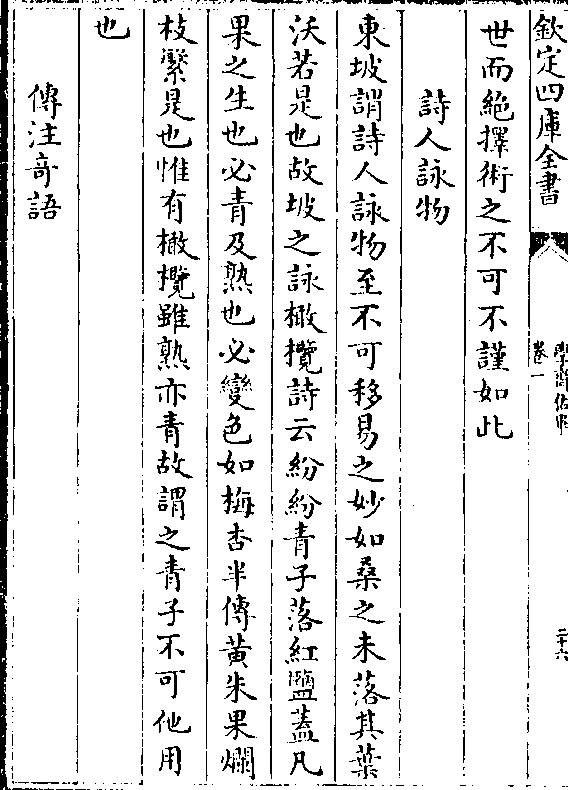 欽定四庫全書
卷一
二十六
世而絶擇術之不可不謹如此
詩人詠物
東坡謂詩人詠物至不可移易之妙如桑之未落其葉
沃若是也故坡之詠橄欖詩云紛紛青子落紅鹽蓋凡
果之生也必青及熟也必變色如梅杏半傳黄朱果爛
枝繁是也惟有橄欖雖熟亦青故謂之青子不可他用
也
傳注竒語